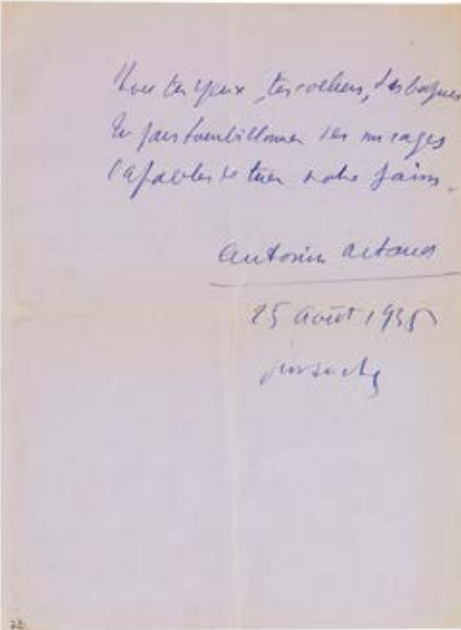 tes yeux, tes colliers, tes bagues
Tu fais tourbillonner
Capables de tuer notre faim.
Antonin Artaud
25 août 1935